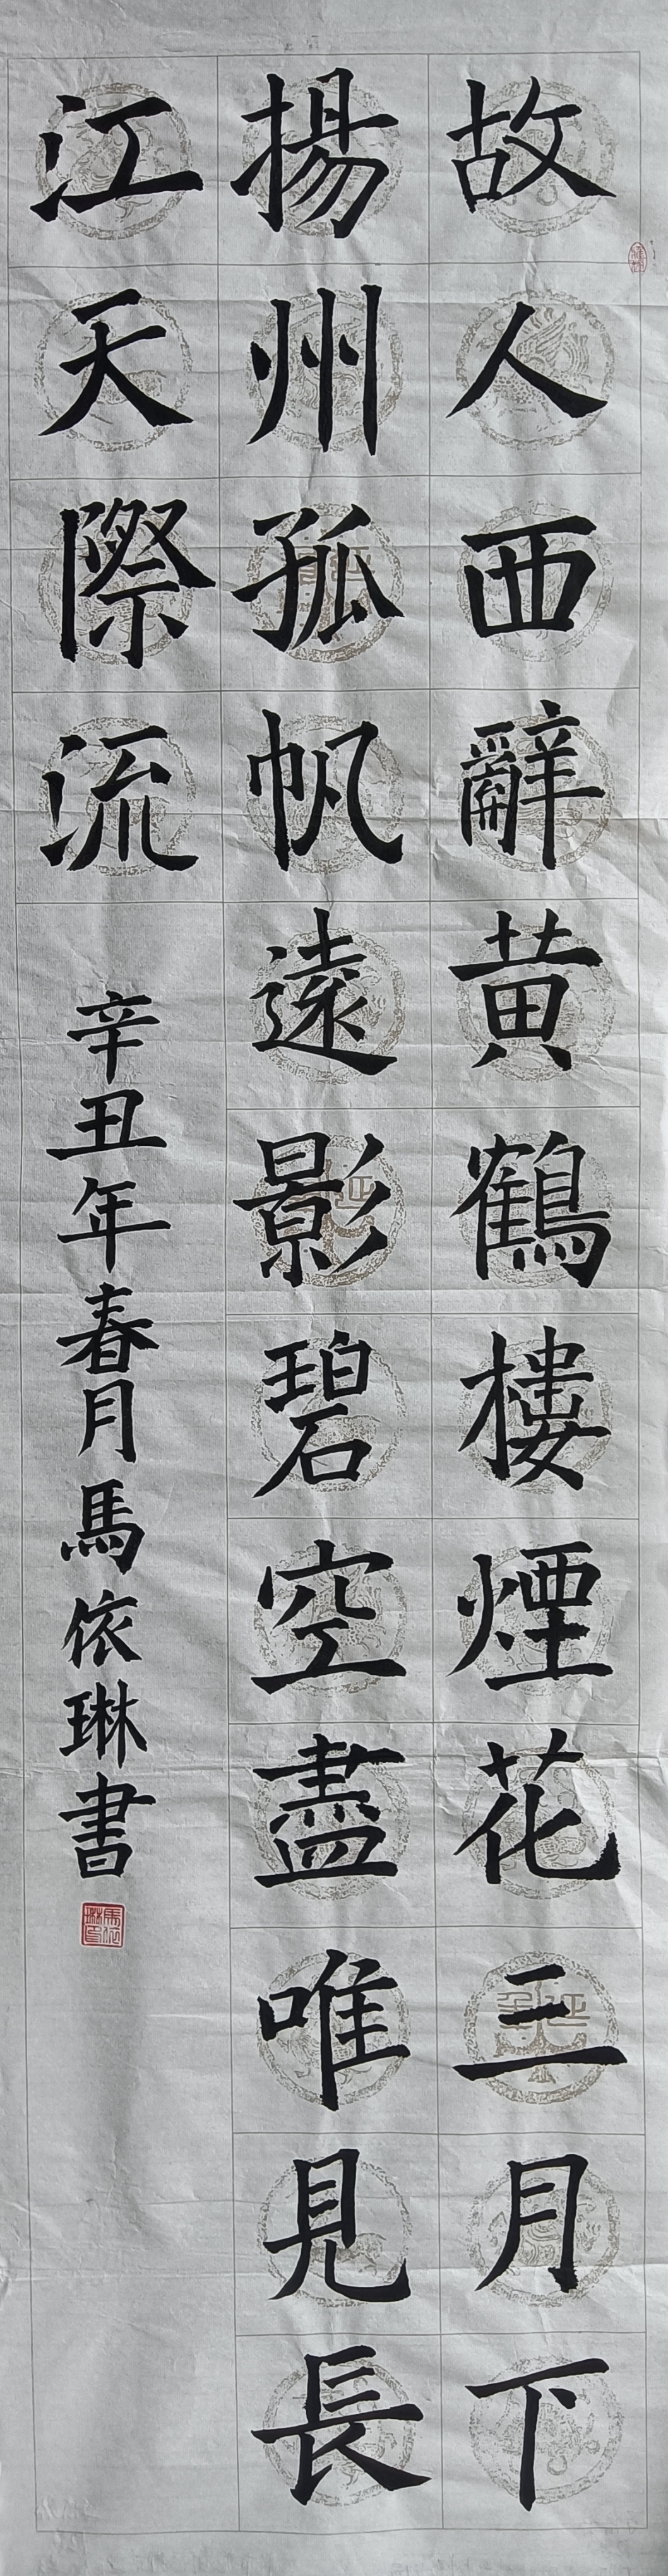 故人西辭黄鶴樓煙花三月下
揚州孤帆遠影碧空盡唯見長
江天際流
辛丑年春月馬依琳書